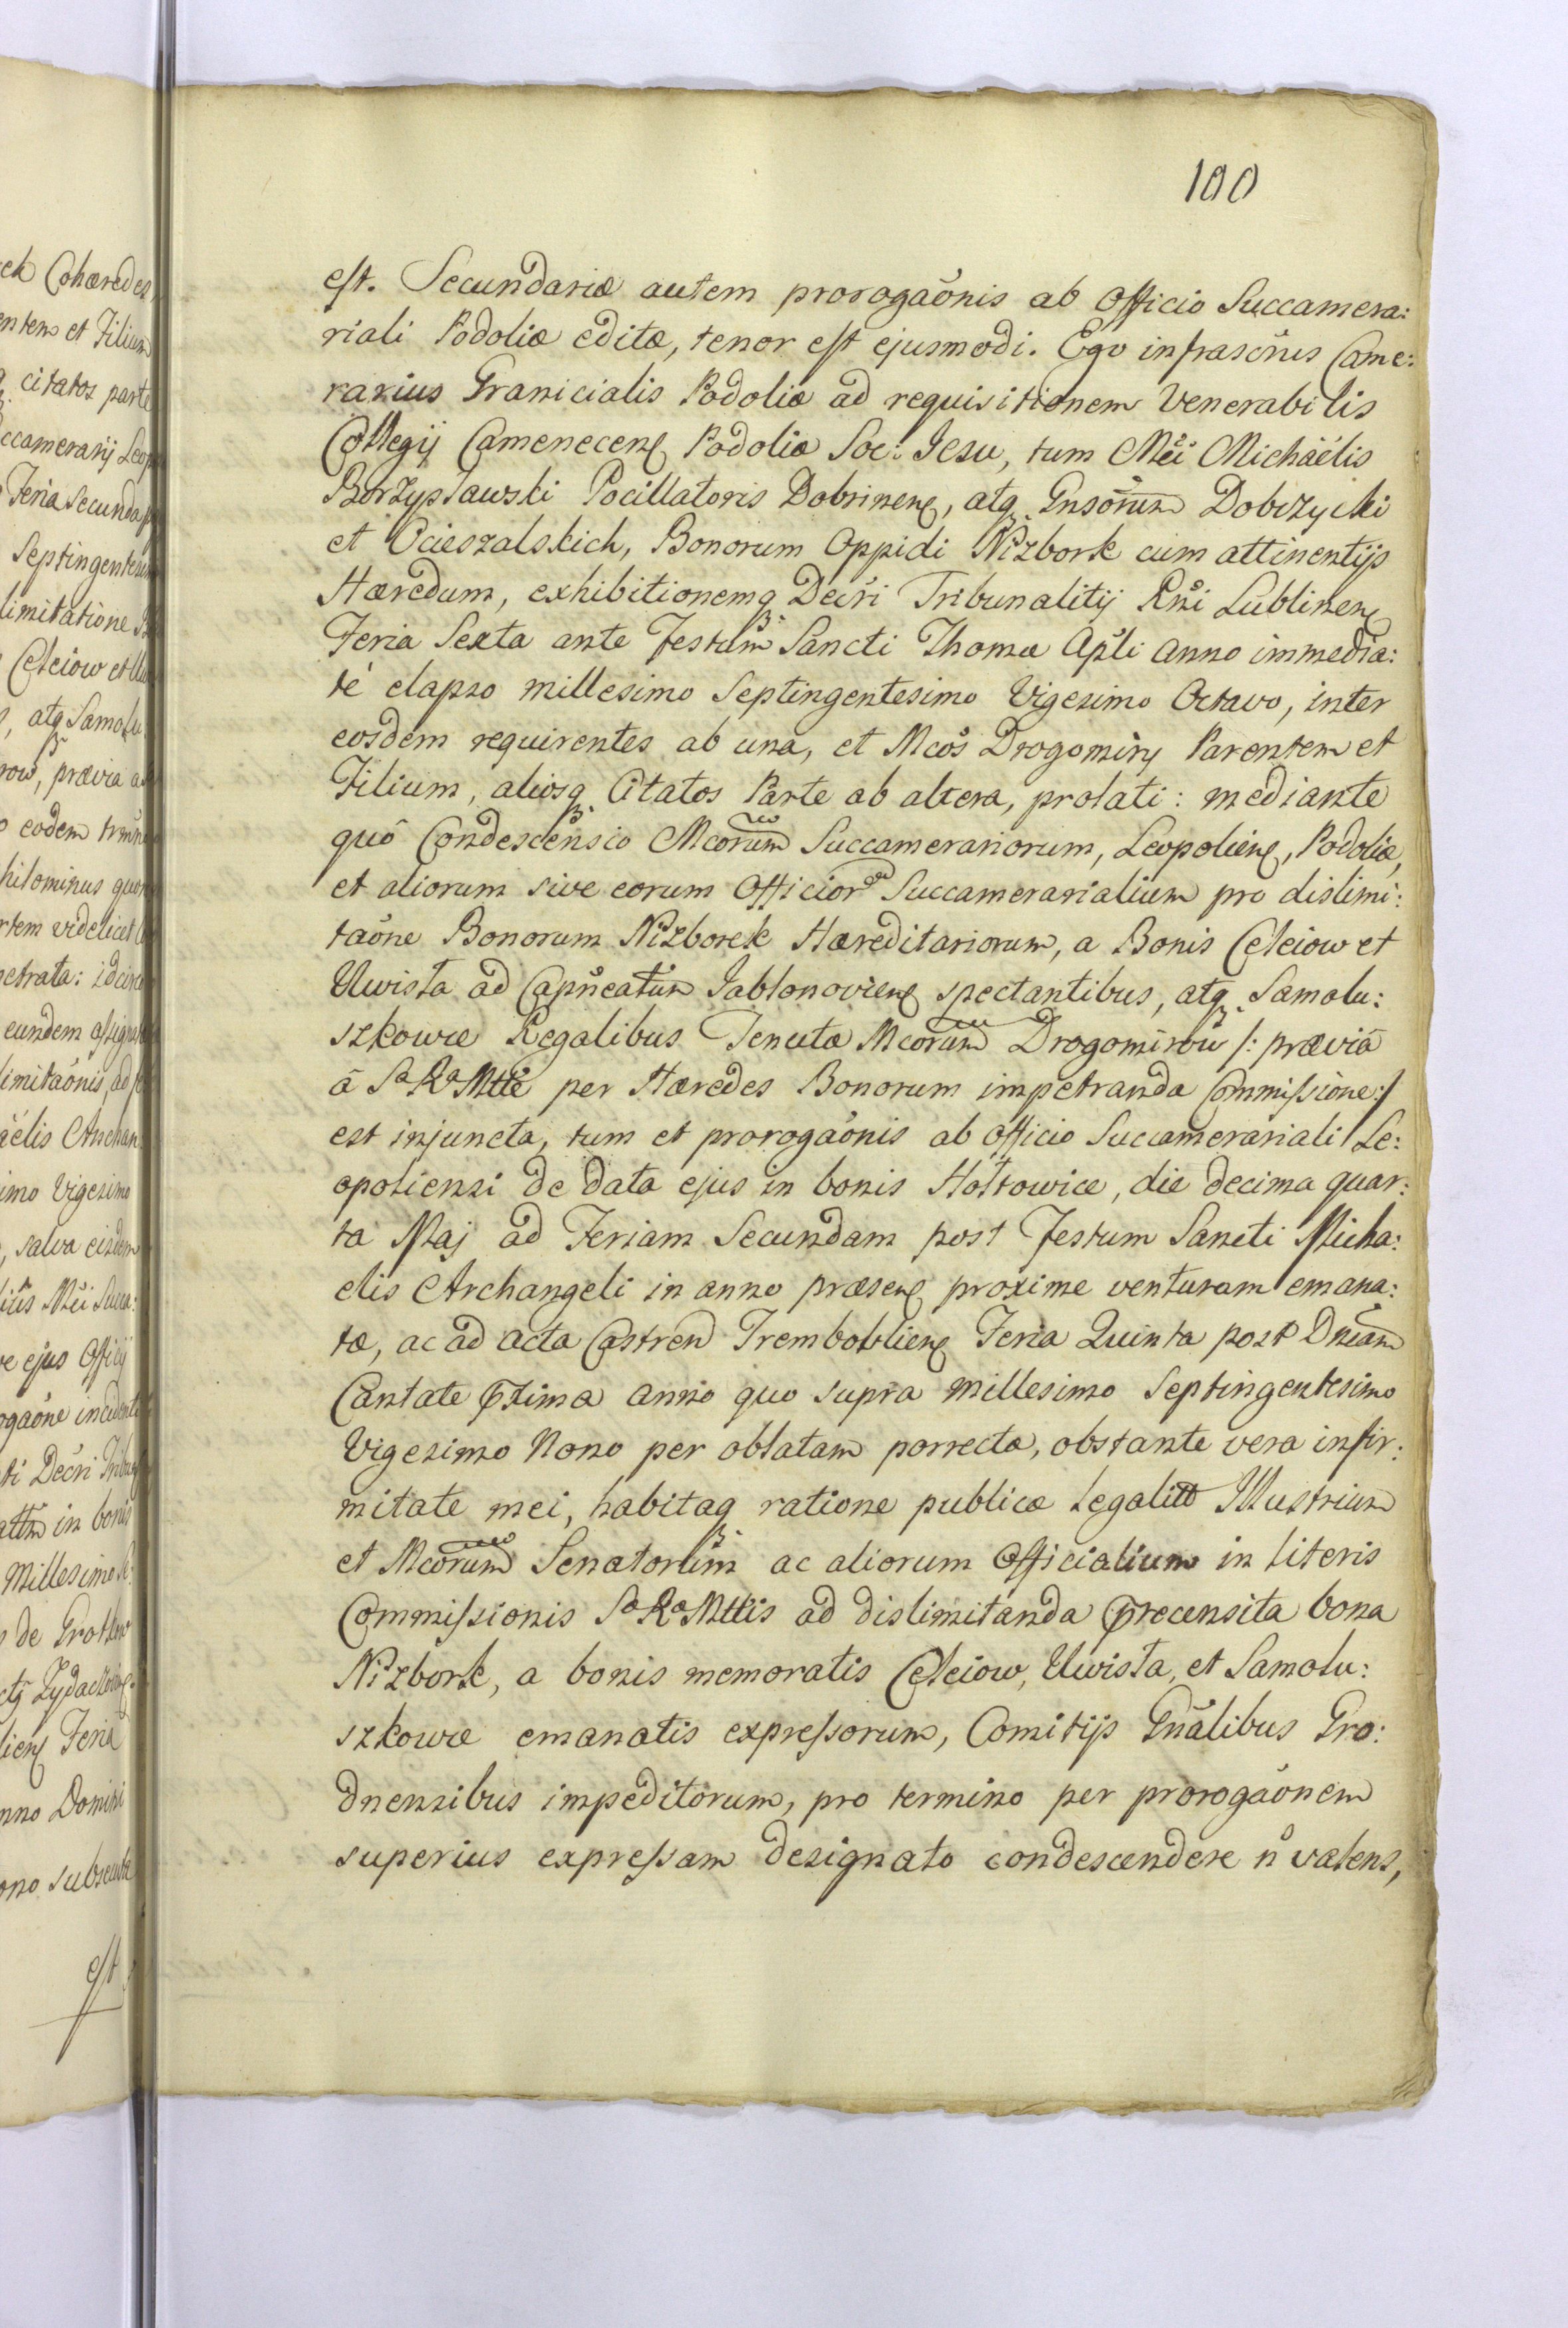 100
est. Secundariæ autem prorogaõnis ab Officio Succamera:
riali Podoliæ editæ, tenor est ejusmodi. Ego infrascr̃us Came:
rarius Granicialis Podoliæ ad requisitionem Venerabilis
Collegij Camenecen̄ Podoliæ Soc: Jesu, tum Mc̃i Michäélis
Borzysławski Pocillatoris Dobrinen̄, atq; Gnsõrum Dobrzycki
et Ocieszalskich, Bonorum Oppidi Niżbork cum attinentijs
Hæredum, exhibitionemq; Decr̃i Tribunalitij Rñi Lublinen̄
Feria Sexta ante Festum Sancti Thomæ Apłi Anno immedia:
té elapso millesimo Septingentesimo Vigesimo Octavo, inter
eosdem requirentes ab una, et Mcõs Drogomiry Parentem et
Filium, aliosq; Citatos Parte ab altera, prolati: mediante
quô Condescensio Mcõrum Succamerariorum, Leopolien̄, Podoliæ,
et aliorum sive eorum Officior Succamerarialium pro dislimi:
taõne Bonorum Niżborek Hæreditariorum, a Bonis Celeiow et
Uwista ad Capñeatum Jabłonovien̄ spectantibus, atq; Samołu:
szkowce Regalibus Tenutæ Mcõrum Drogomirow /: præviâ
â Sa Ra Mtte per Hæredes Bonorum impetranda Commissione :/
est injuncta, tum et prorogaõnis ab Officio Succamerariali Le:
opoliensi de data ejus in bonis Hołtowice, die decima quar:
ta Maj ad Feriam Secundam post Festum Sancti Micha:
elis Archangeli in anno præsen̄ proxime venturam emana:
tæ, ac ad acta Castren̄ Trembovlien̄ Feria Quinta post Dñicam
Cantate pxima anno quo supra millesimo Septingentesimo
Vigesimo Nono per oblatam porrectæ, obstante vera infir:
mitate mei, habitaq; ratione publicæ Legalitt Illustrium
et Mcõrum Senatorum ac aliorum Officialium in literis
Commissionis Sa Ra Mttis ad dislimitanda precensita bona
Niżbork, a bonis memoratis Celeiow, Uwista, et Samołu:
szkowce emanatis expressorum, Comitijs Gñalibus Gro:
dnensibus impeditorum, pro termino per prorogaõnem
superius expressam designato condescendere ñ valens,